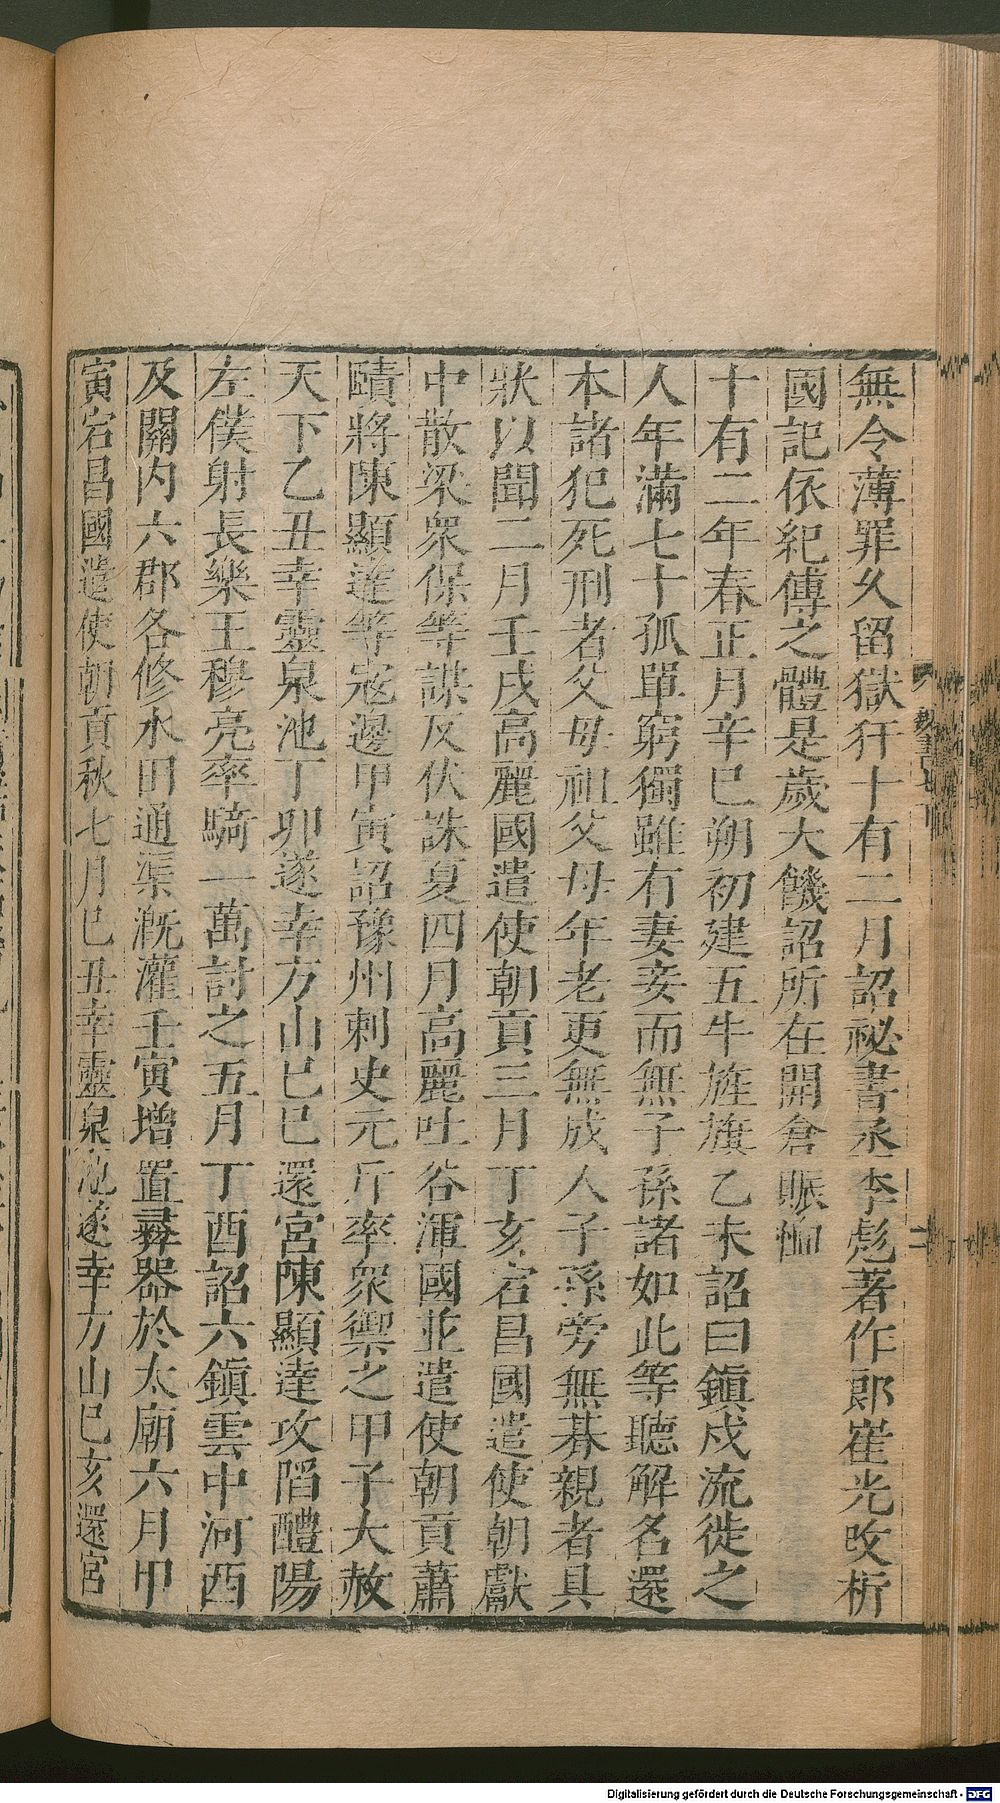 無令薄罪久留獄犴十有二月詔祕書丞李彪著作郎崔光改析
國記依紀傳之體是歲大饑詔所在開倉賑恤
十有二年春正月辛巳朔初建五牛旌旗乙未詔曰鎮戍流徙之
人年滿七十孤單窮獨雖有妻妾而無子孫諸如此等聽解名還
本諸犯死刑者父母祖父母年老更無成人子孫旁無朞親者具
狀以聞二月壬戌高麗國遣使朝貢三月丁亥宕昌國遣使朝獻
中散梁衆保等謀反伏誅夏四月高麗吐谷渾國並遣使朝貢蕭
賾將陳顯達等寇邊甲寅詔豫州刺史元斤率衆禦之甲子大赦
天下乙丑幸靈泉池丁卯遂幸方山己巳還宮陳顯達攻陷醴陽
左僕射長樂王穆亮率騎一萬討之五月丁酉詔六鎮雲中河西
及關內六郡各修水田通渠溉灌壬寅增置彝器於太廟六月甲
寅宕昌國遣使朝貢秋七月己丑幸靈泉池遂幸方山己亥還宮
魏書七下
Digitalisierung gefördert durch die Deutsche Forschungsgemeinschaft - DFG